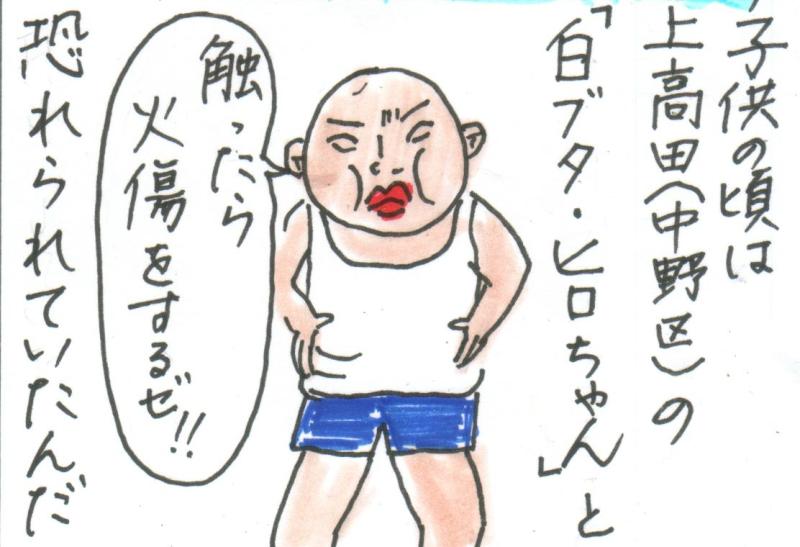 子供の頃は
上高田(中野区)の
「白ブタ・ヒロちゃん」と
触ったら
火傷をするゼ!!
恐れられていたんだ